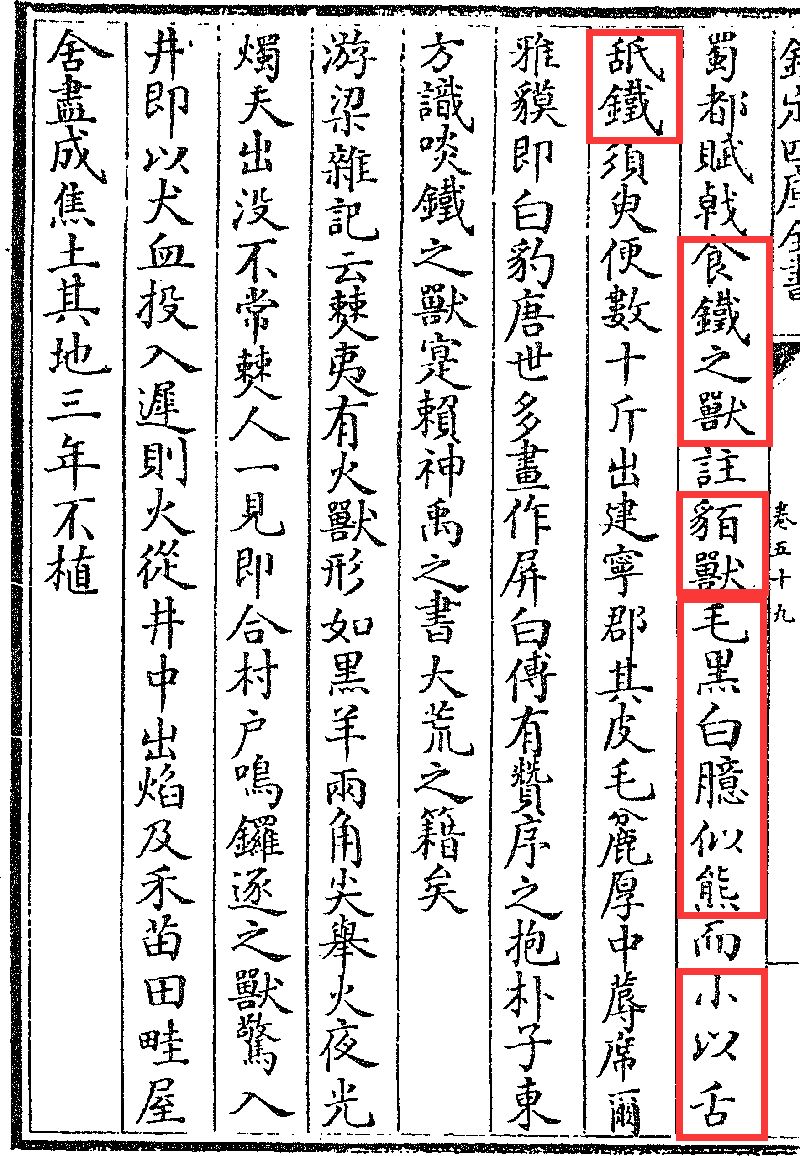 欽定四庫全書
卷五十九
蜀都賦戟食鐵之獸註貊獸毛黑白臆似熊而小以舌
舐鐵須臾便數十斤出建寧郡其皮毛麄厚中蓐席爾
雅貘即白豹唐世多畫作屏白傅有贊序之抱朴子東
方識啖鐵之獸寔賴神禹之書大荒之籍矣
游梁雜記云僰夷有火獸形如黑羊兩角尖舉火夜光
燭天出没不常僰人一見即合村户鳴鑼逐之獸驚入
井即以犬血投入遲則火從井中出焰及禾苗田畦屋
舍盡成焦土其地三年不植